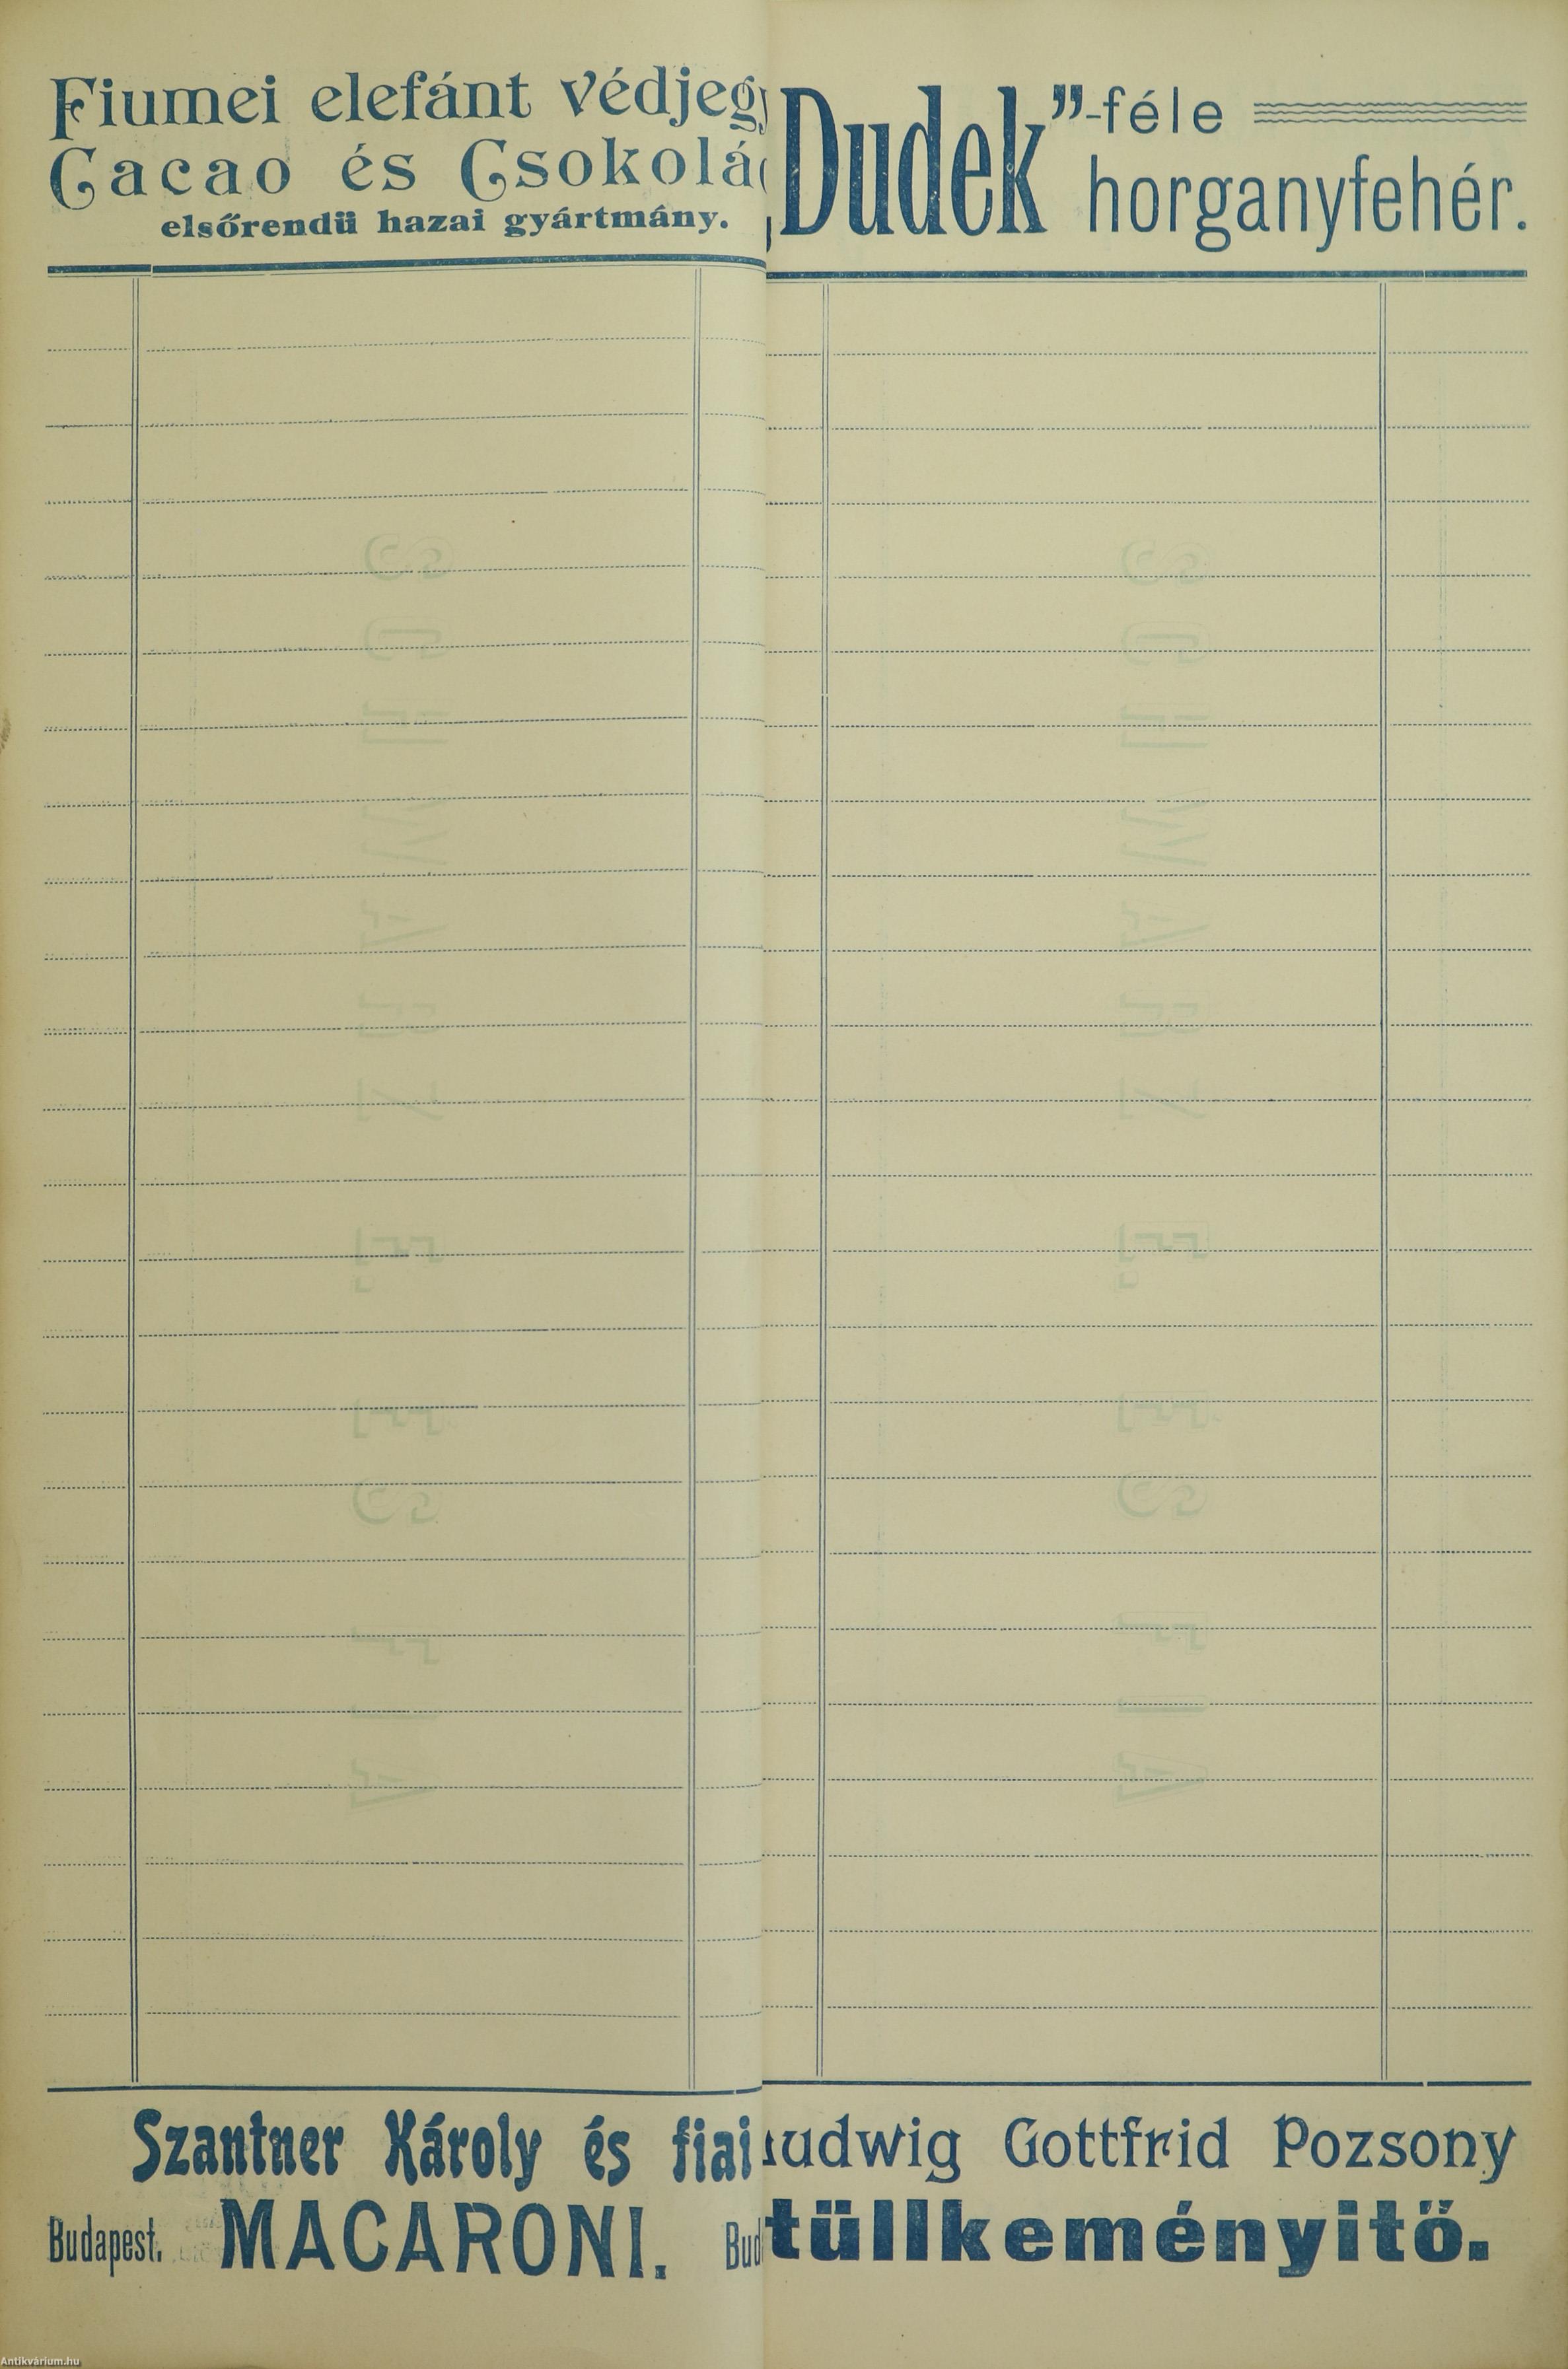 Fiumei elefánt védjegy
Cacao és Csokolá
elsőrendü hazai gyártmány.
„Dudek”-féle
horganyfehér.
Szantner Károly és fiai
Budapest. MACARONI. Bud
udwig Gottfrid Pozsony
tüllkeményitő.
Antikvárium.hu